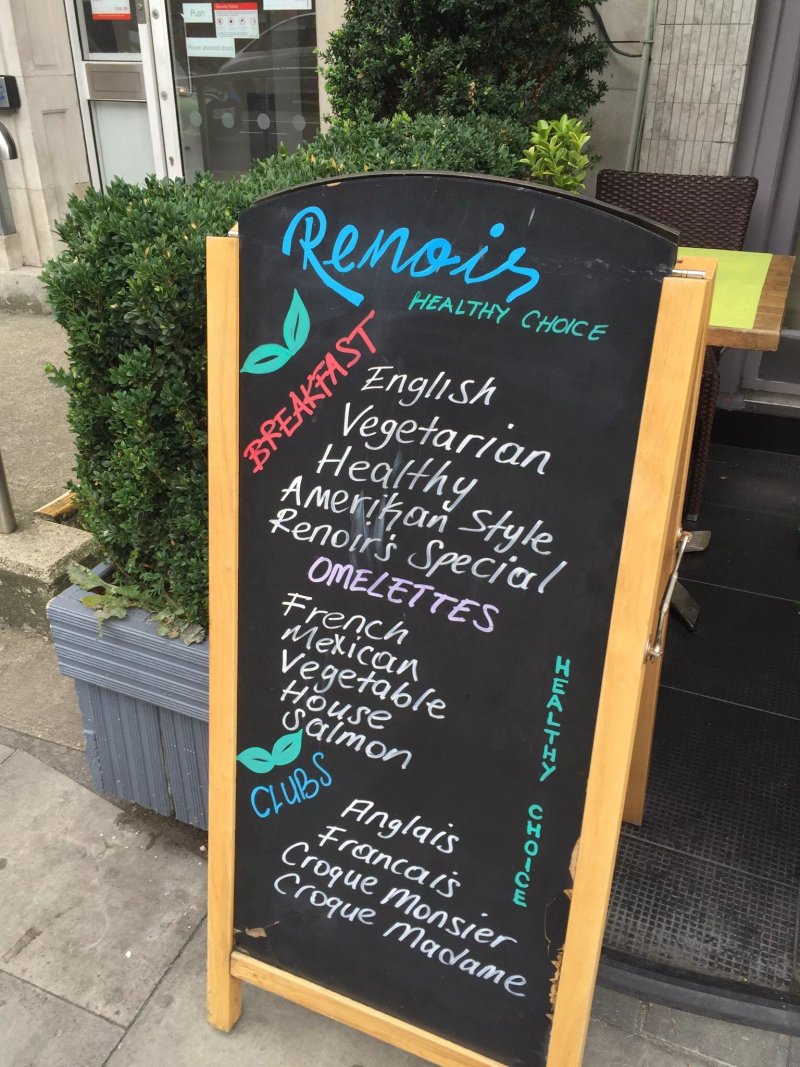 Push
Renoir
HEALTHY CHOICE
BREAKFAST
English
Vegetarian
Healthy
Amerikan Style
Renoir's Special
OMELETTES
French
Mexican
Vegetable
House
Salmon
CLUBS
Anglais
Francais
Croque Monsier
Croque Madame
HEALTHY CHOICE